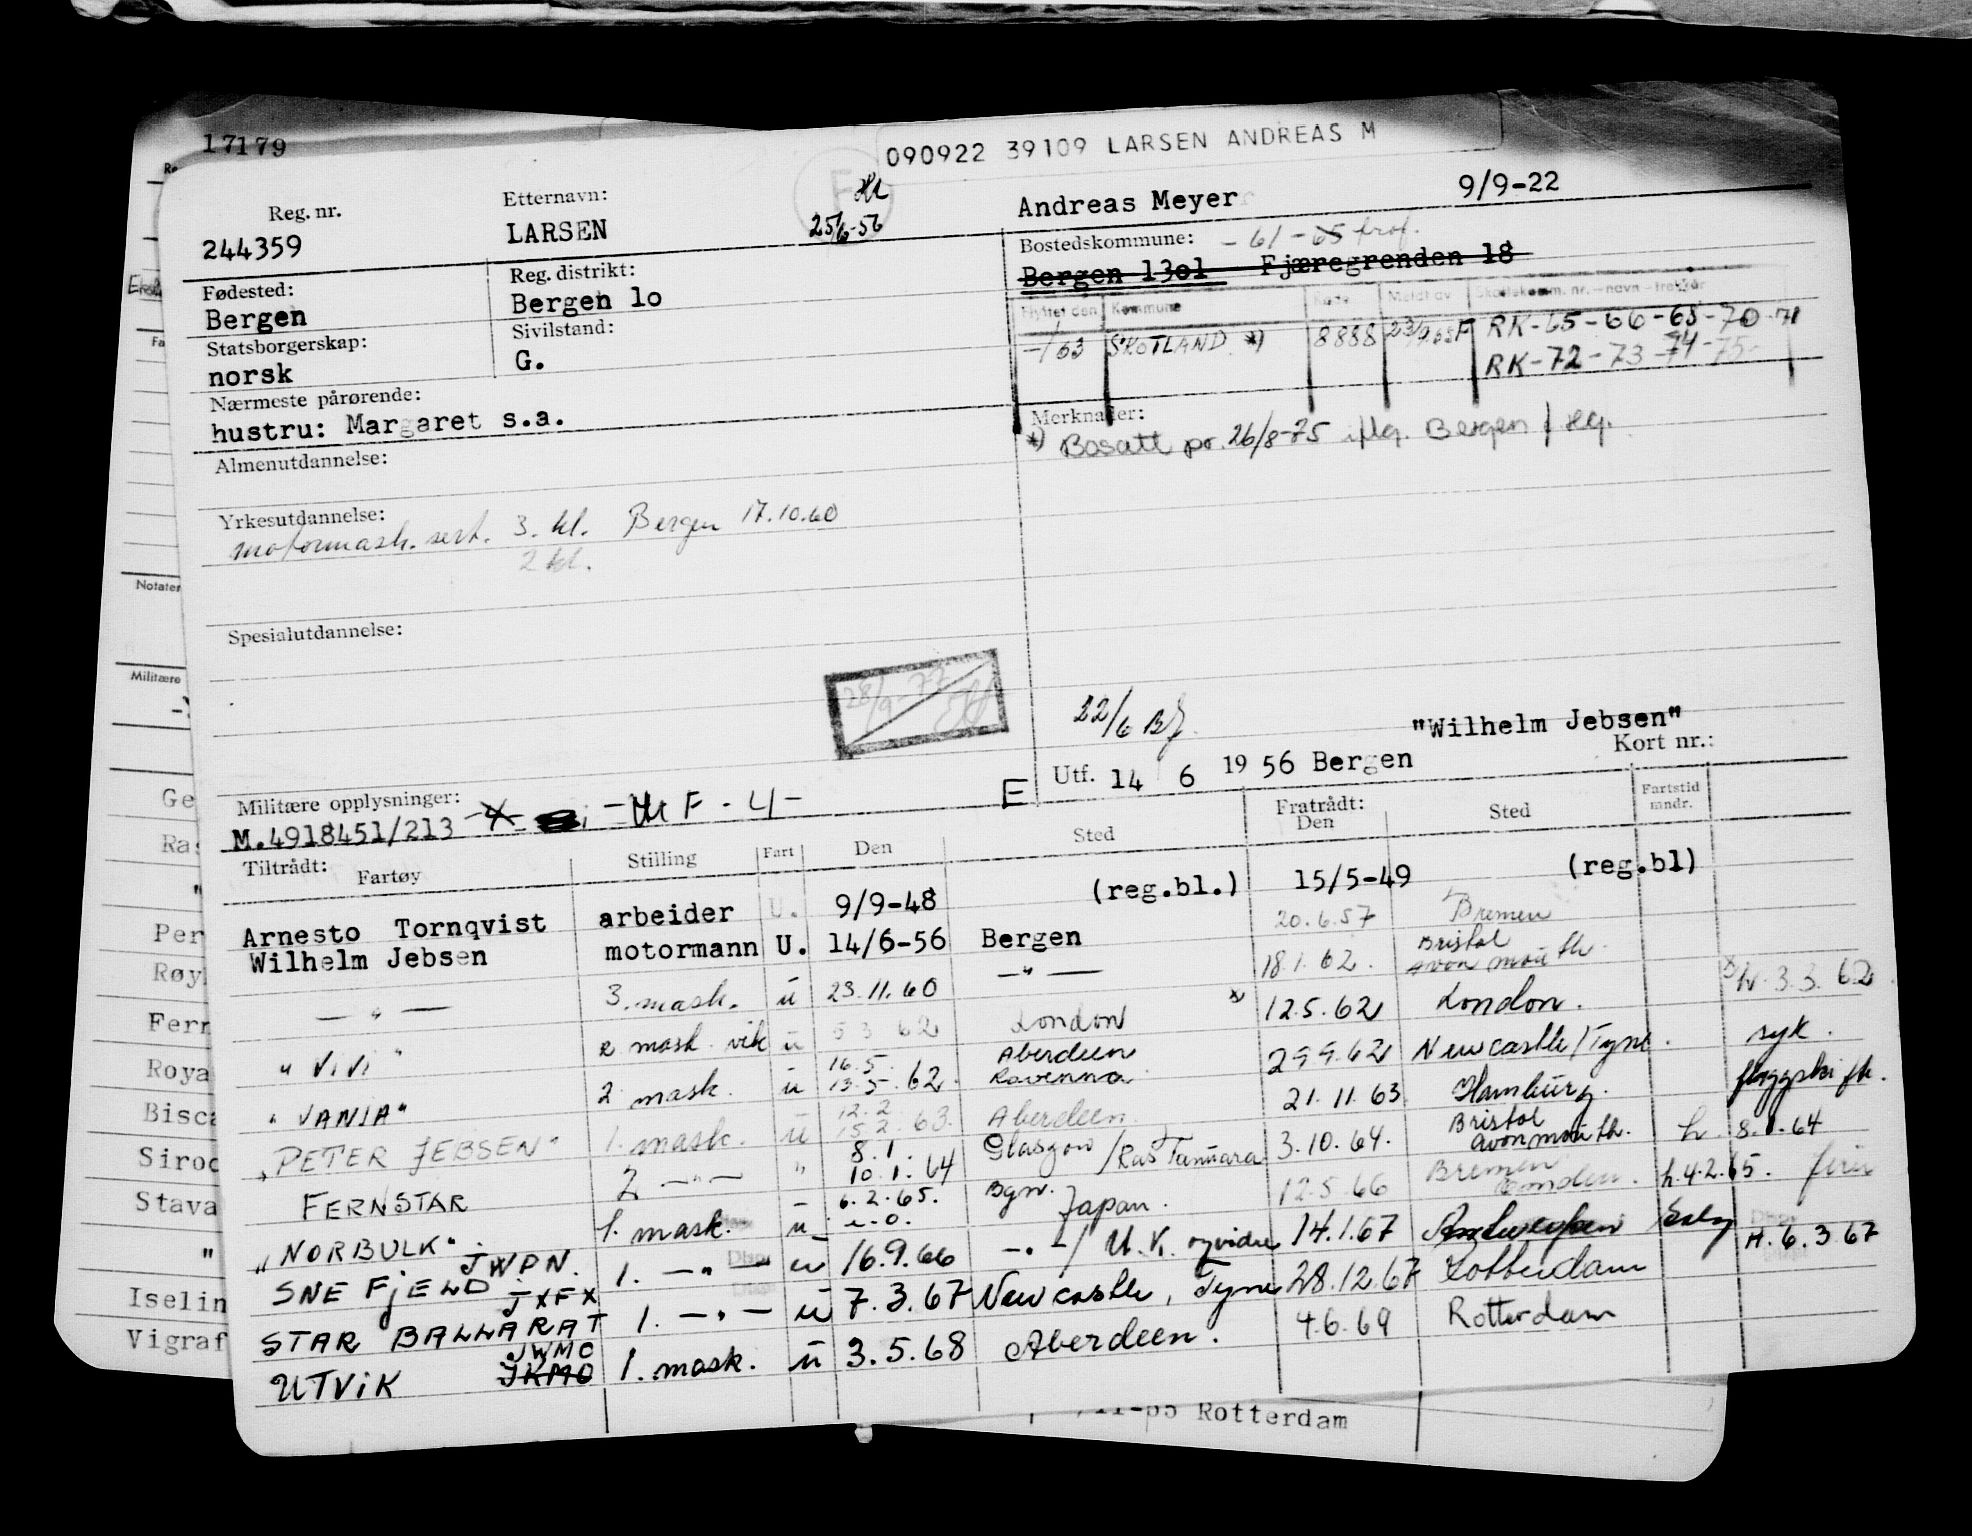 17179
090922 39109 LARSEN ANDREAS M
Reg. nr.
Etternavn:
244359
LARSEN
25/6-56
Andreas Meyer
9/9-22
Fødested:
Bergen
Reg. distrikt:
Bergen lo
Bostedskommune: - 61 - 65 frof.
Bergen 13ol Fjæregrenden 18
Statsborgerskap:
norsk
Sivilstand:
G.
Flyttet den Kommune Kode Meldt av Skattekomm. nr. - navn - trekkår
-/63 SKOTLAND *) 8888 F RK-65-66-68-70-71
RK-72-73-74-75-
Nærmeste pårørende:
hustru: Margaret s.a.
Merknader:
*) Bosatt pr. 26/8-75 iflg. Bergen f.reg.
Almenutdannelse:
Yrkesutdannelse:
motormask. sert. 3. kl. Bergen 17.10.60
2 kl.
Spesialutdannelse:
28/9-77
22/6 BJ
"Wilhelm Jebsen"
Kort nr.:
E Utf. 14 6 19 56 Bergen
Militære opplysninger:
M.4918451/213 F - 4 -
Tiltrådt:
Fartøy Stilling Fart Den Sted Fratrådt: Den Sted Fartstid mndr.
Arnesto Tornqvist arbeider U. 9/9-48 (reg.bl.) 15/5-49 (reg.bl)
Wilhelm Jebsen motormann U. 14/6-56 Bergen 20.6.57 Bremen
— " — 3. mask. u 23.11.60 — " — 18.1.62. Bristol avonmouth
" ViVi " 2 mask. vik u 5 3 62 London * 12.5.62 London. * h. 3.3.62
"VANJA" 2 mask. u 16.5. 13.5.62. Aberdeen Ravenna 29.9.62 Newcastle/Tyne. syk.
"PETER JEBSEN" 1. mask. u 12.2 15.2.63. Aberdeen. 21.11.63 Hamburg. flaggskifte.
FERNSTAR 2 — " — " 8.1. 10.1.64 Glasgow/Ras Tanura 3.10.64. Bristol avonmouth. h. 8.1.64
"NORBULK". JWPN. 1. mask. u 6.2.65. Bgn. Japan. 12.5.66 Bremen Emden. h.4.2.65. ferie
SNEFJELD JXFX 1. — " — u 16.9.66 — " —/ U.K. 14.1.67 Antwerpen
STAR BALLARAT JWMO 1. — " — u 7.3.67 Newcastle, Tyne 28.12.67 Rotterdam H.6.3.67
UTVIK JKMO 1. mask. u 3.5.68 Aberdeen. 4.6.69 Rotterdam
Notater
Militære
Ge
Ras
"
Per
Røy
Fern
Roya
Bisca
Siroc
Stava
"
Iselin
Vigraf
11-55 Rotterdam